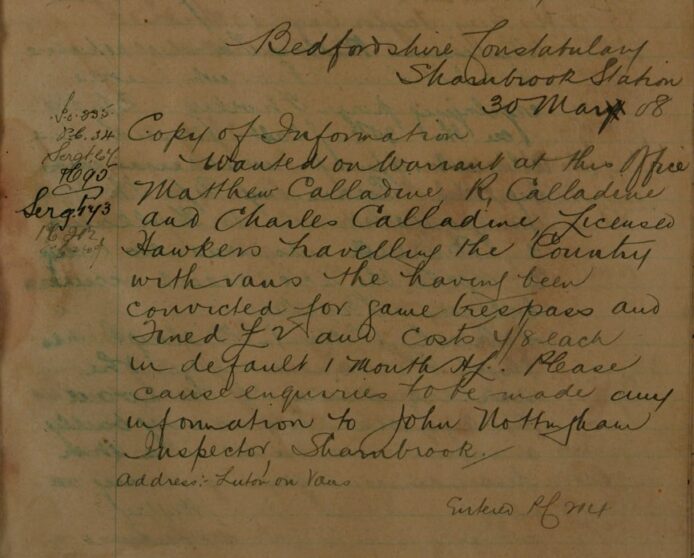 Bedfordshire Constabulary
Sharnbrook Station
30 May 08
Copy of Information
Wanted on Warrant at this Office
Matthew Calladine, R, Calladine
and Charles Calladine, Licensed
Hawkers travelling the Country
with vans the having been
convicted for game trespass and
Fined £2 and costs 4/8 each
in default 1 Month HL. Please
cause enquiries to be made any
information to John Nottingham
Inspector, Sharnbrook.
Address:- Luton on Vans
Entered PC
Sergt 67
Sergt 43